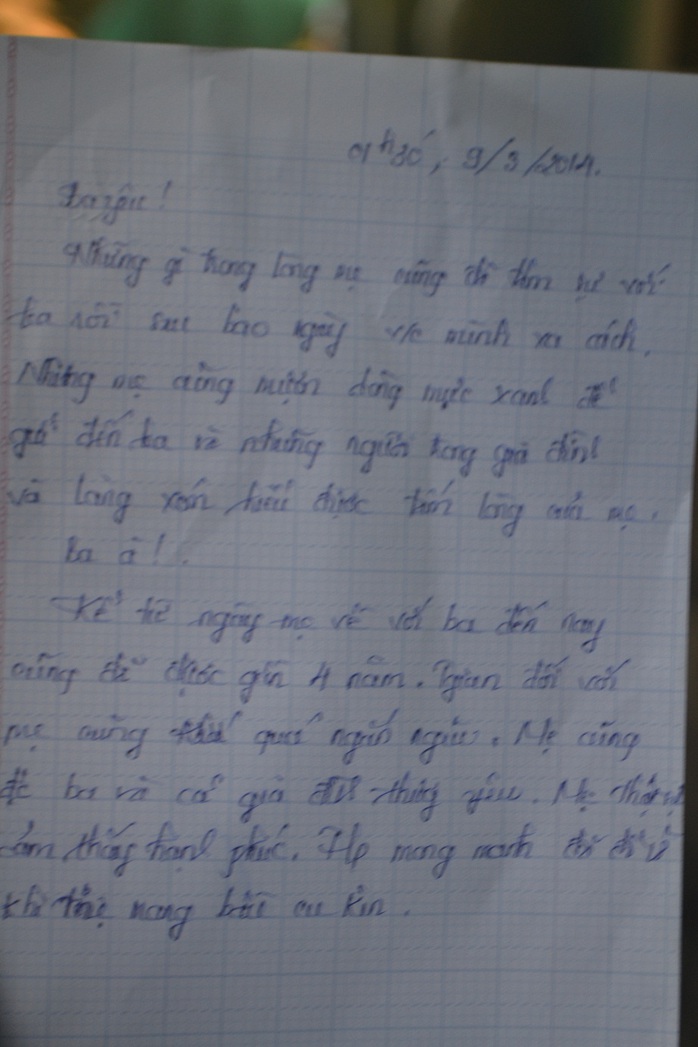 01h30, 9/3/2014.
Ba yêu!
Những gì trong lòng mẹ cũng đã tâm sự với
ba rồi sau bao ngày v/c mình xa cách.
Nhưng mẹ cũng mượn dòng mực xanh để
gửi đến ba và những người trong gia đình
và làng xóm hiểu được tấm lòng của mẹ.
Ba à!.
Kể từ ngày mẹ về với ba đến nay
cũng đã được gần 4 năm. đối với
mẹ cũng quá ngắn ngủi. Mẹ cũng
đc ba và cả gia đình thương yêu. Mẹ thật sự
cảm thấy hạnh phúc. mong manh đã
khi mẹ mang bầu cu